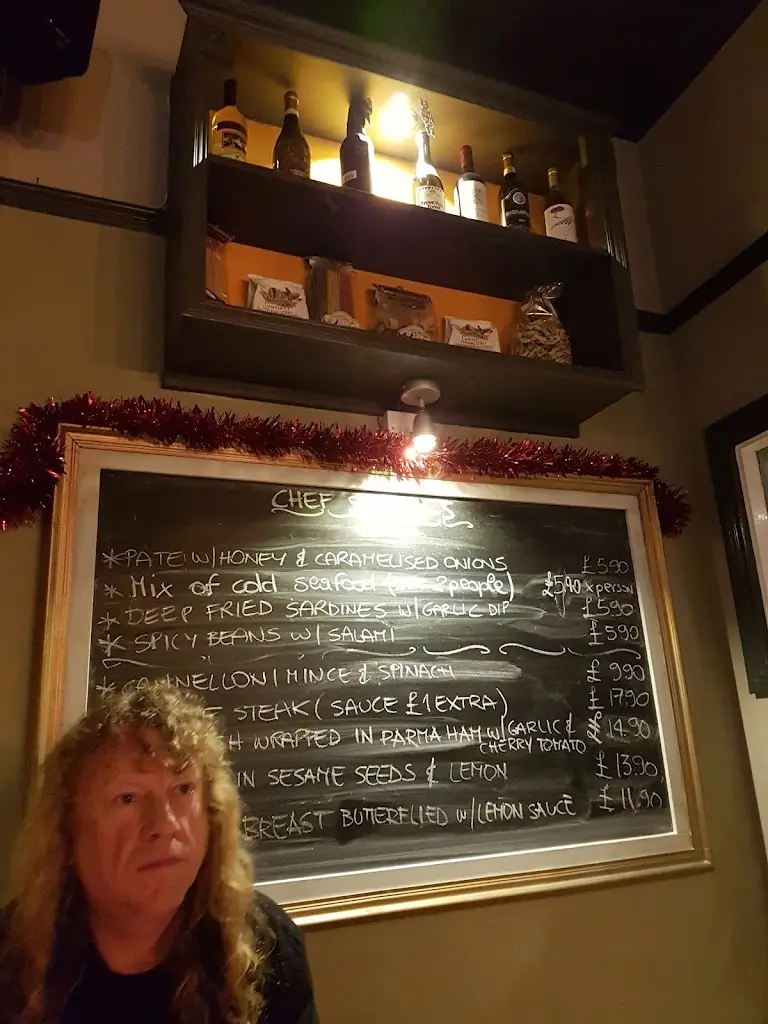 CHEF
*PATE W/HONEY & CARAMELISED ONIONS £5.90
* Mix of cold seafood ( 2people) £5,90 x person
* DEEP FRIED SARDINES W/GARLIC DIP £5.90
* SPICY BEANS W/ SALAMI £5.90
* CANNELLONI MINCE & SPINACH 9.90
STEAK (SAUCE £1 EXTRA) 17.90
WRAPPED IN PARMA HAM W/GARLIC & 14.90
CHERRY TOMATO
IN SESAME SEEDS & LEMON £13.90
BREAST BUTTERFLIED W/LEMON SAUCE £11.90